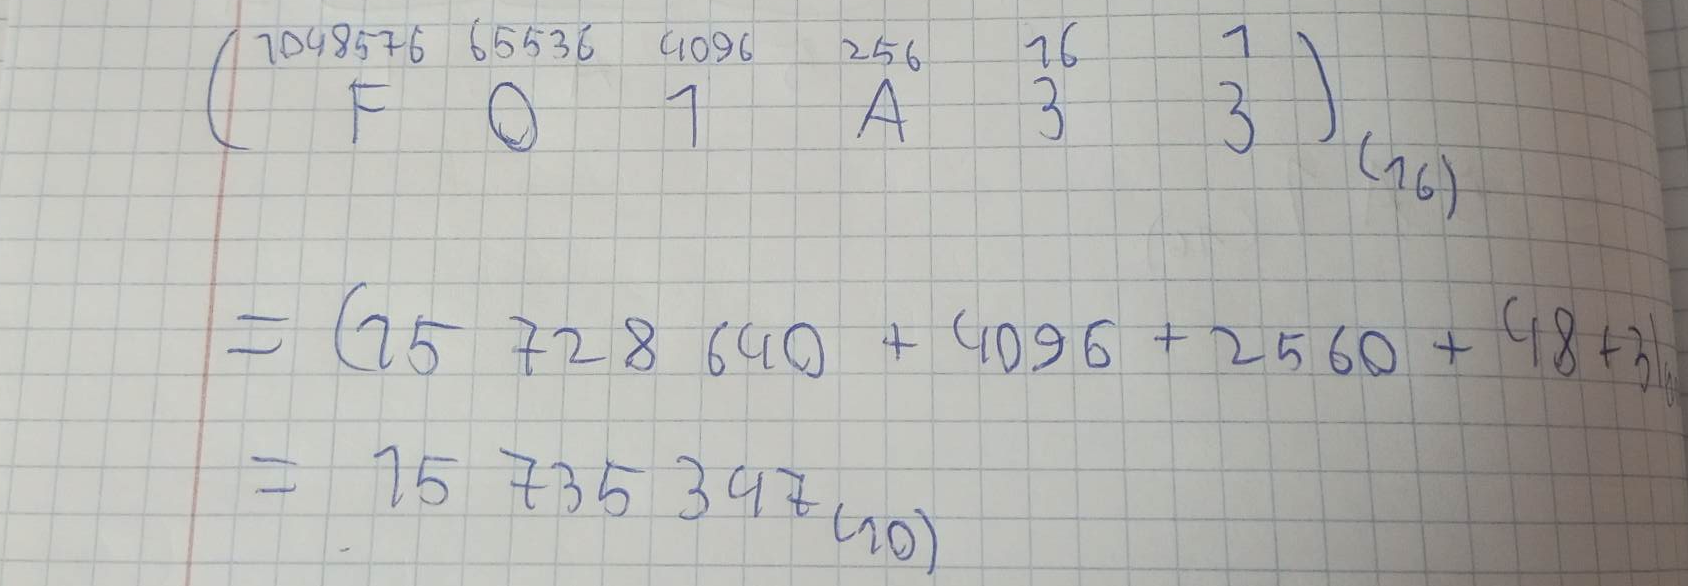 1048576 65536 4096 256 16 1
( F 0 1 A 3 3 ) (16)
= (15 728 640 + 4096 + 2560 + 48 + 3)
= 15 735 347 (10)